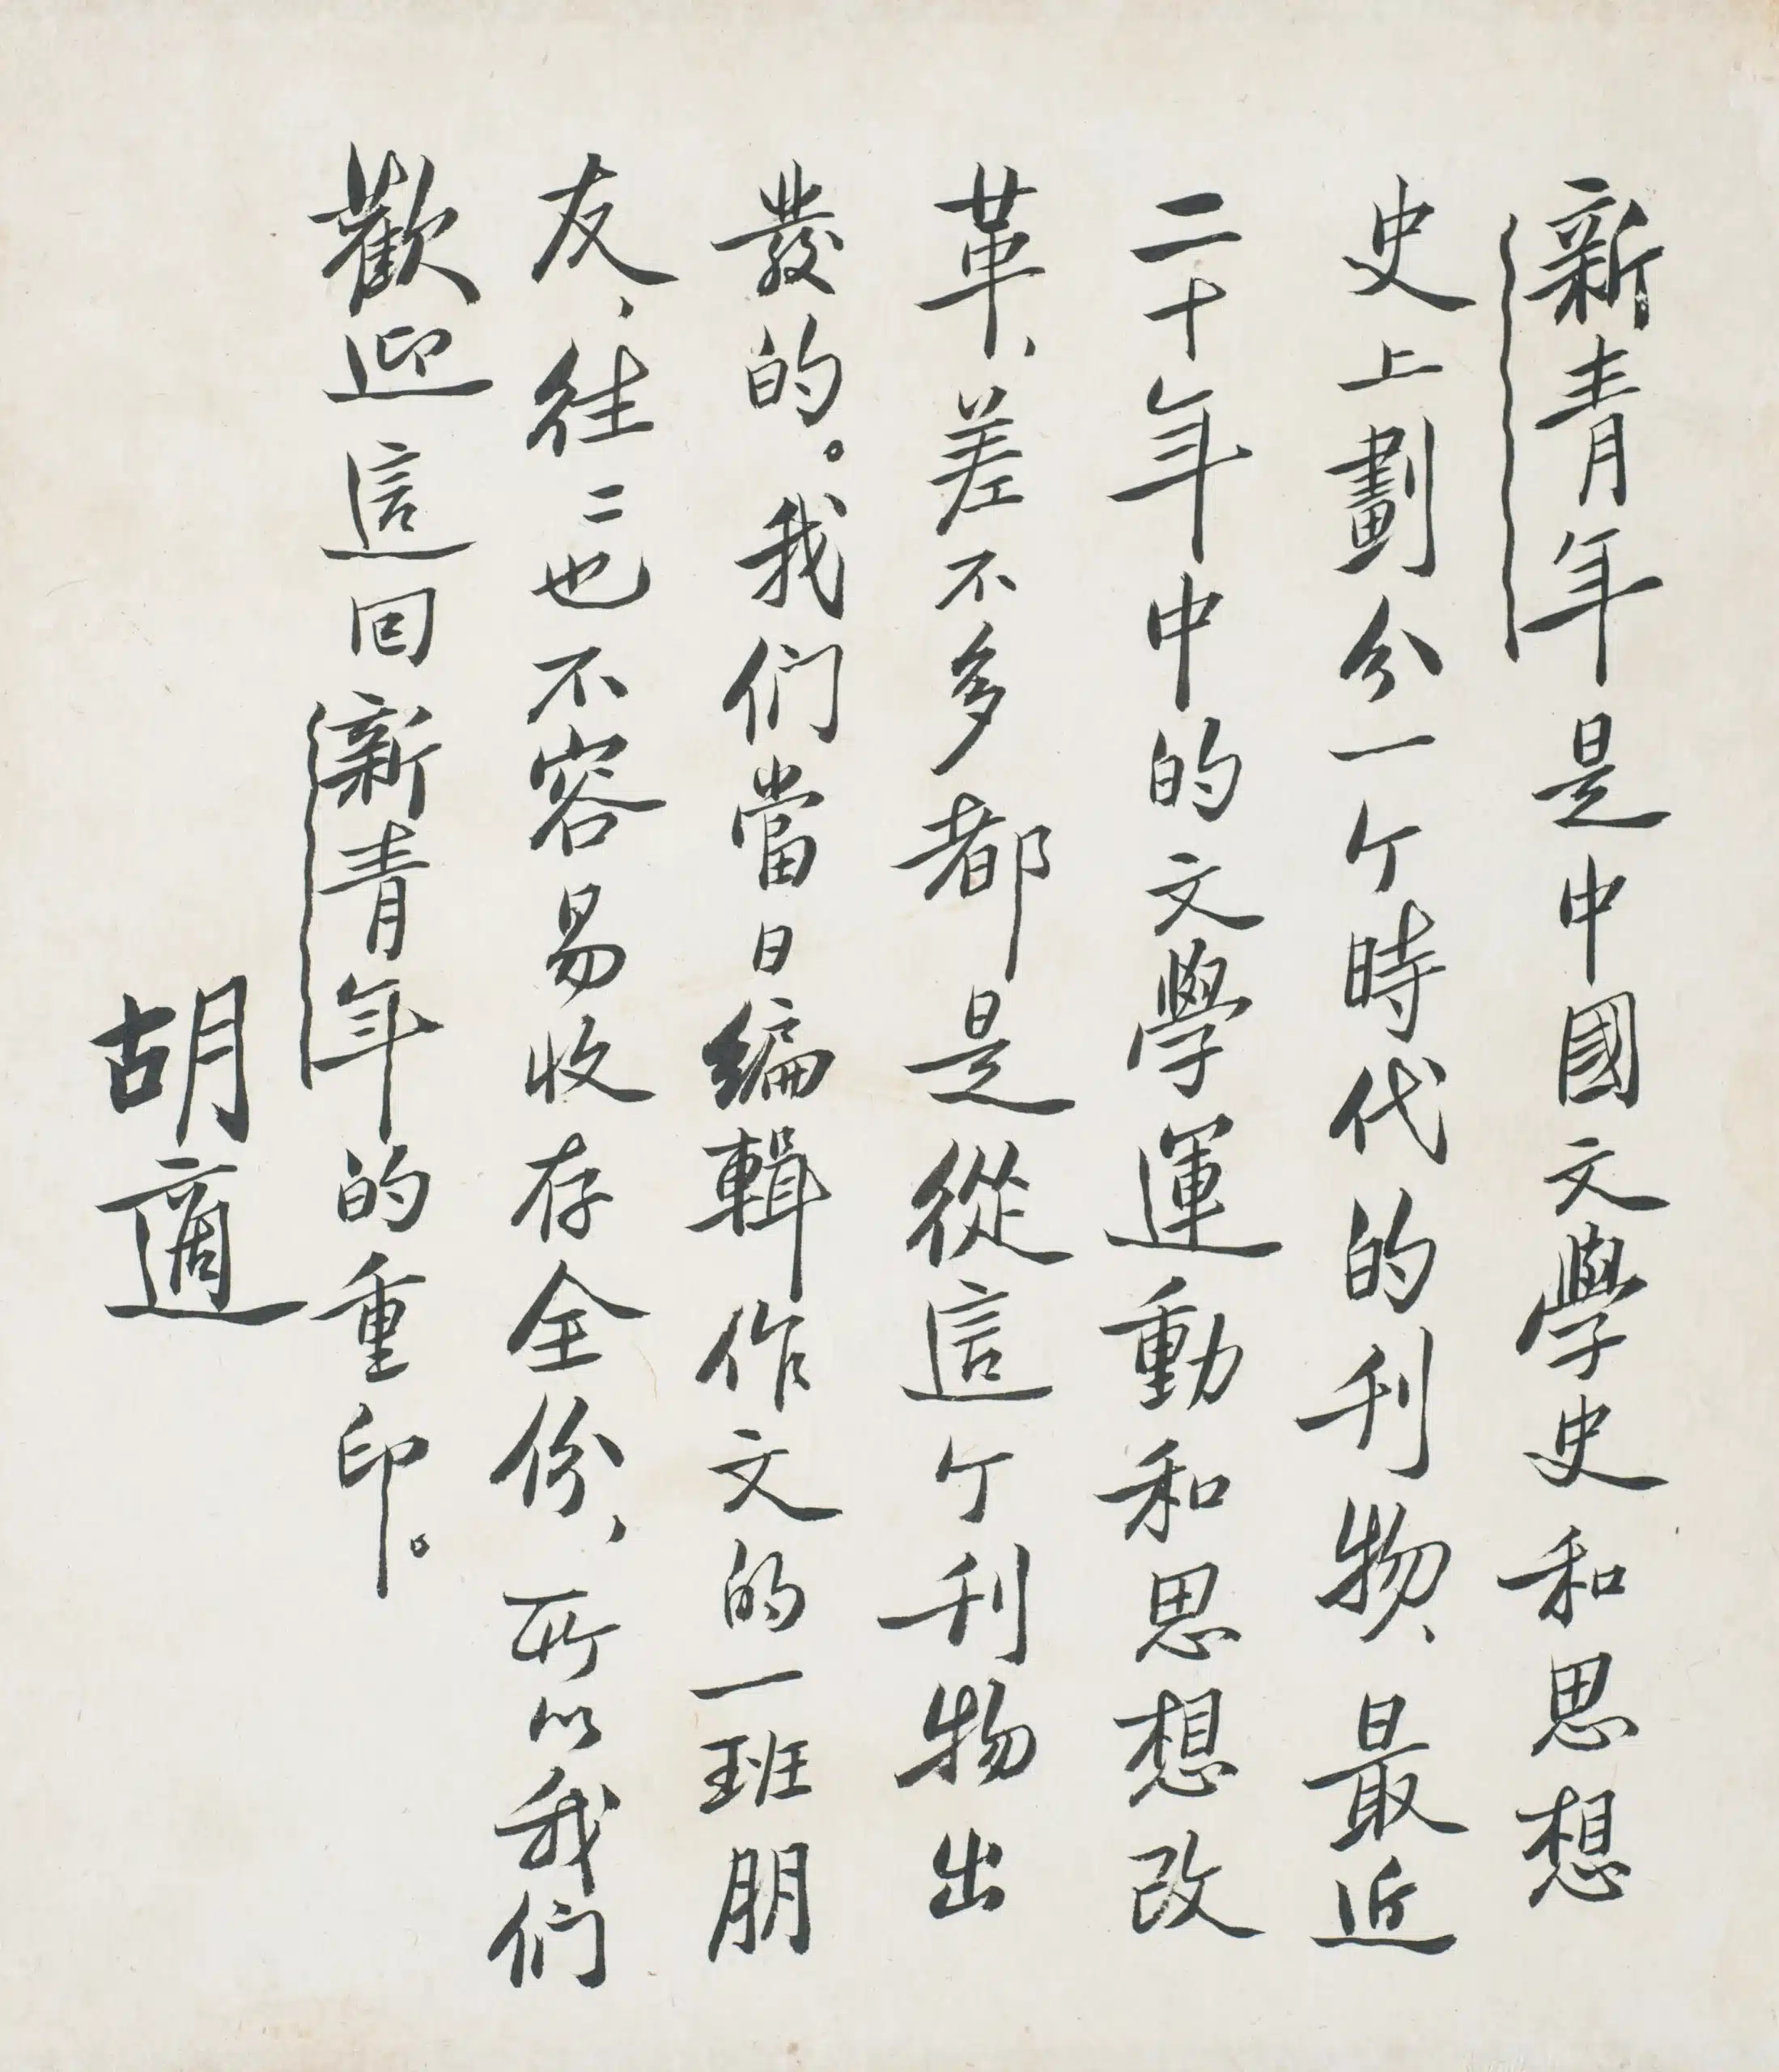 新青年是中國文學史和思想
史上劃分一个時代的刊物、最近
二十年中的文學運動和思想改
革、差不多都是從這个刊物出
發的。我们當日編輯作文的一班朋
友、往二也不容易收存全份、所以我们
歡迎這回新青年的重印。
胡適